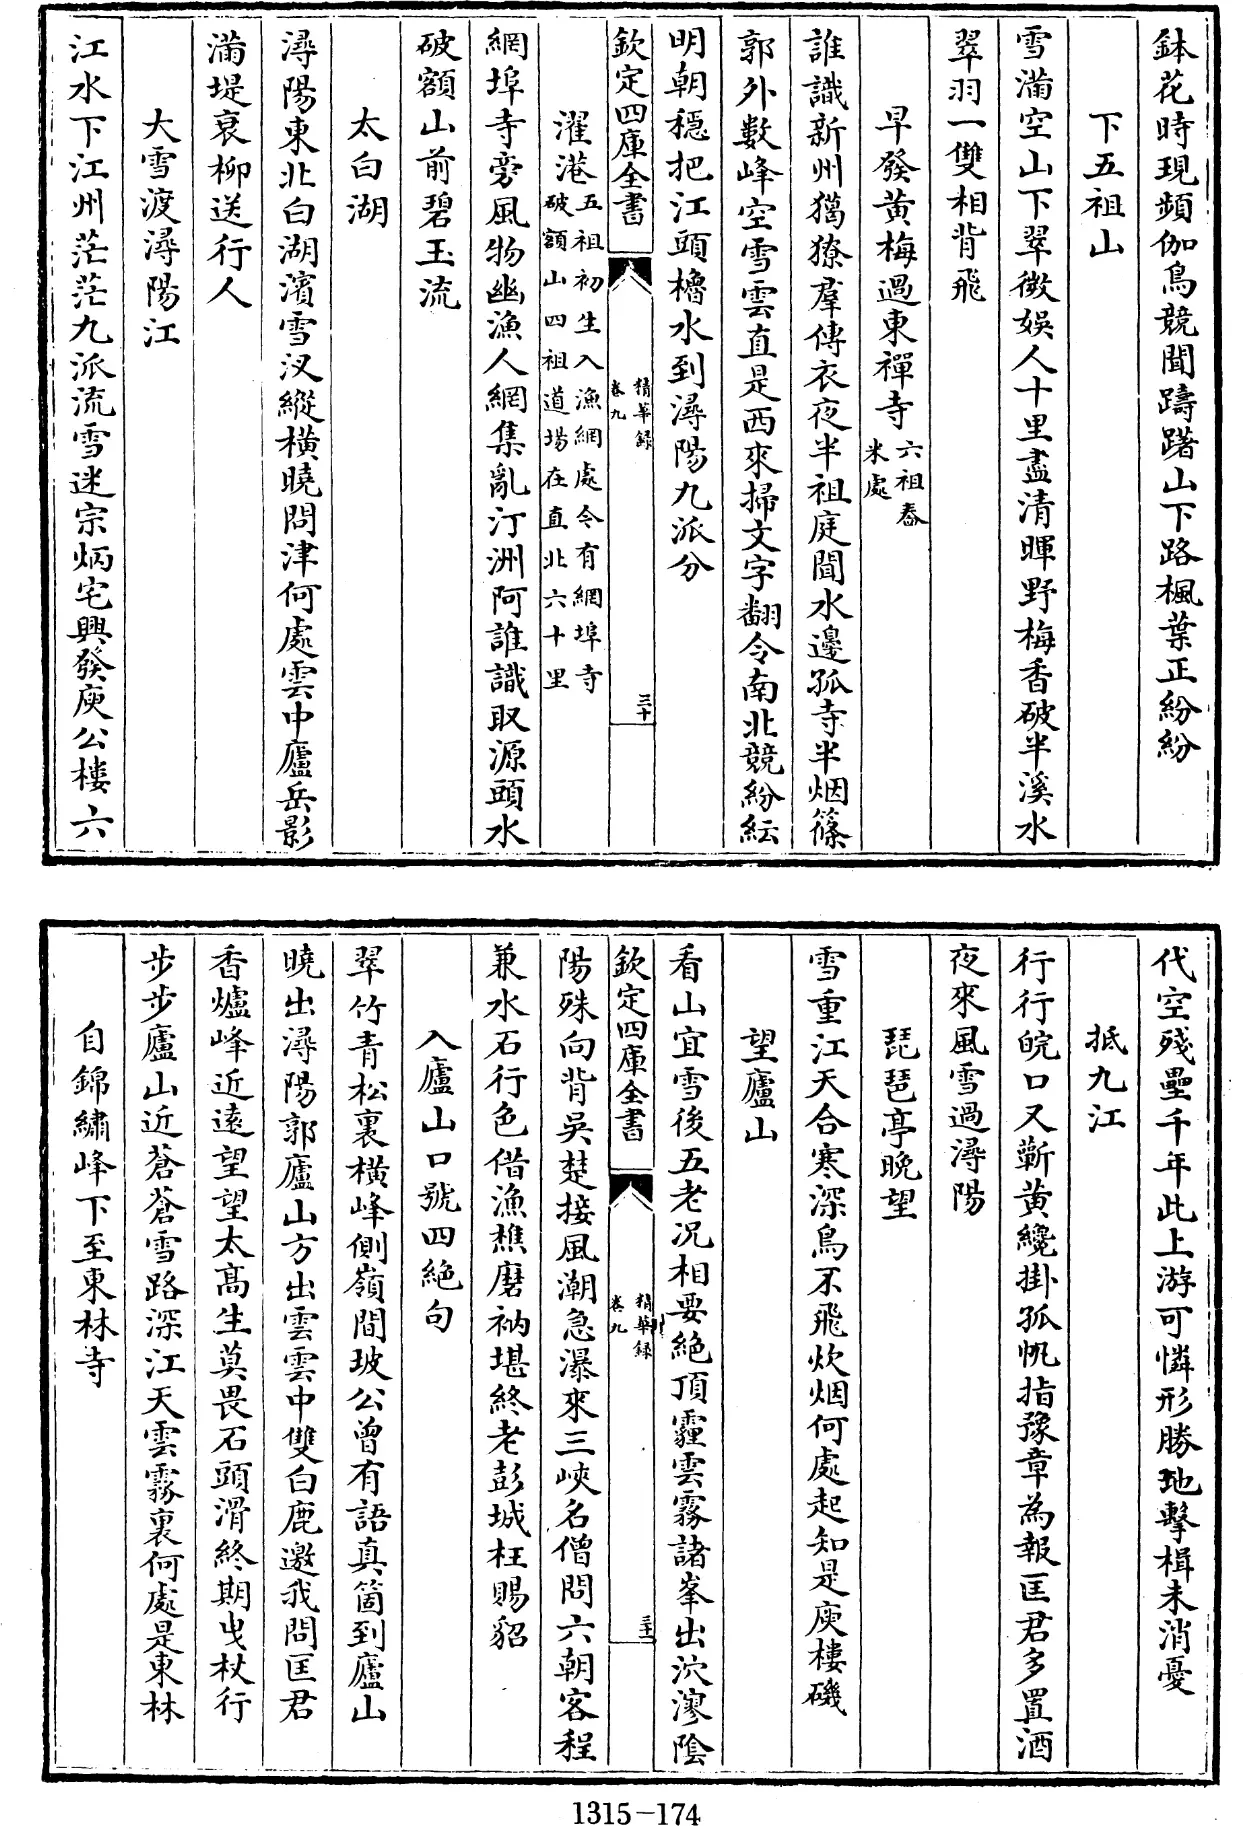 鉢花時現頻伽鳥競聞躊躇山下路楓葉正紛紛
下五祖山
雪滿空山下翠微娛人十里盡清暉野梅香破半溪水
翠羽一雙相背飛
早發黃梅過東禪寺六祖舂
米處
誰識新州獦獠羣傳衣夜半祖庭聞水邊孤寺半烟篠
郭外數峰空雪雲直是西來掃文字翻令南北競紛紜
明朝穩把江頭櫓水到潯陽九派分
欽定四庫全書
精華録
卷九
三十
濯港五祖初生入漁網處今有網埠寺
破額山四祖道場在直北六十里
網埠寺旁風物幽漁人網集亂汀洲阿誰識取源頭水
破額山前碧玉流
太白湖
潯陽東北白湖濱雪汊縱橫曉問津何處雲中廬岳影
滿堤衰柳送行人
大雪渡潯陽江
江水下江州茫茫九派流雪迷宗炳宅興發庾公樓六
代空殘壘千年此上游可憐形勝地擊楫未消憂
抵九江
行行皖口又蘄黃纔掛孤帆指豫章為報匡君多置酒
夜來風雪過潯陽
琵琶亭晚望
雪重江天合寒深鳥不飛炊烟何處起知是庾樓磯
望廬山
看山宜雪後五老况相要絶頂霾雲霧諸峯出泬漻陰
欽定四庫全書
精華録
卷九
三十一
陽殊向背吳楚接風潮急瀑來三峽名僧問六朝客程
兼水石行色借漁樵磨衲堪終老彭城枉賜貂
入廬山口號四絶句
翠竹青松裏橫峰側嶺間坡公曾有語真箇到廬山
曉出潯陽郭廬山方出雲雲中雙白鹿邀我問匡君
香爐峰近遠望望太高生莫畏石頭滑終期曳杖行
步步廬山近蒼蒼雪路深江天雲霧裏何處是東林
自錦繡峰下至東林寺
1315-174